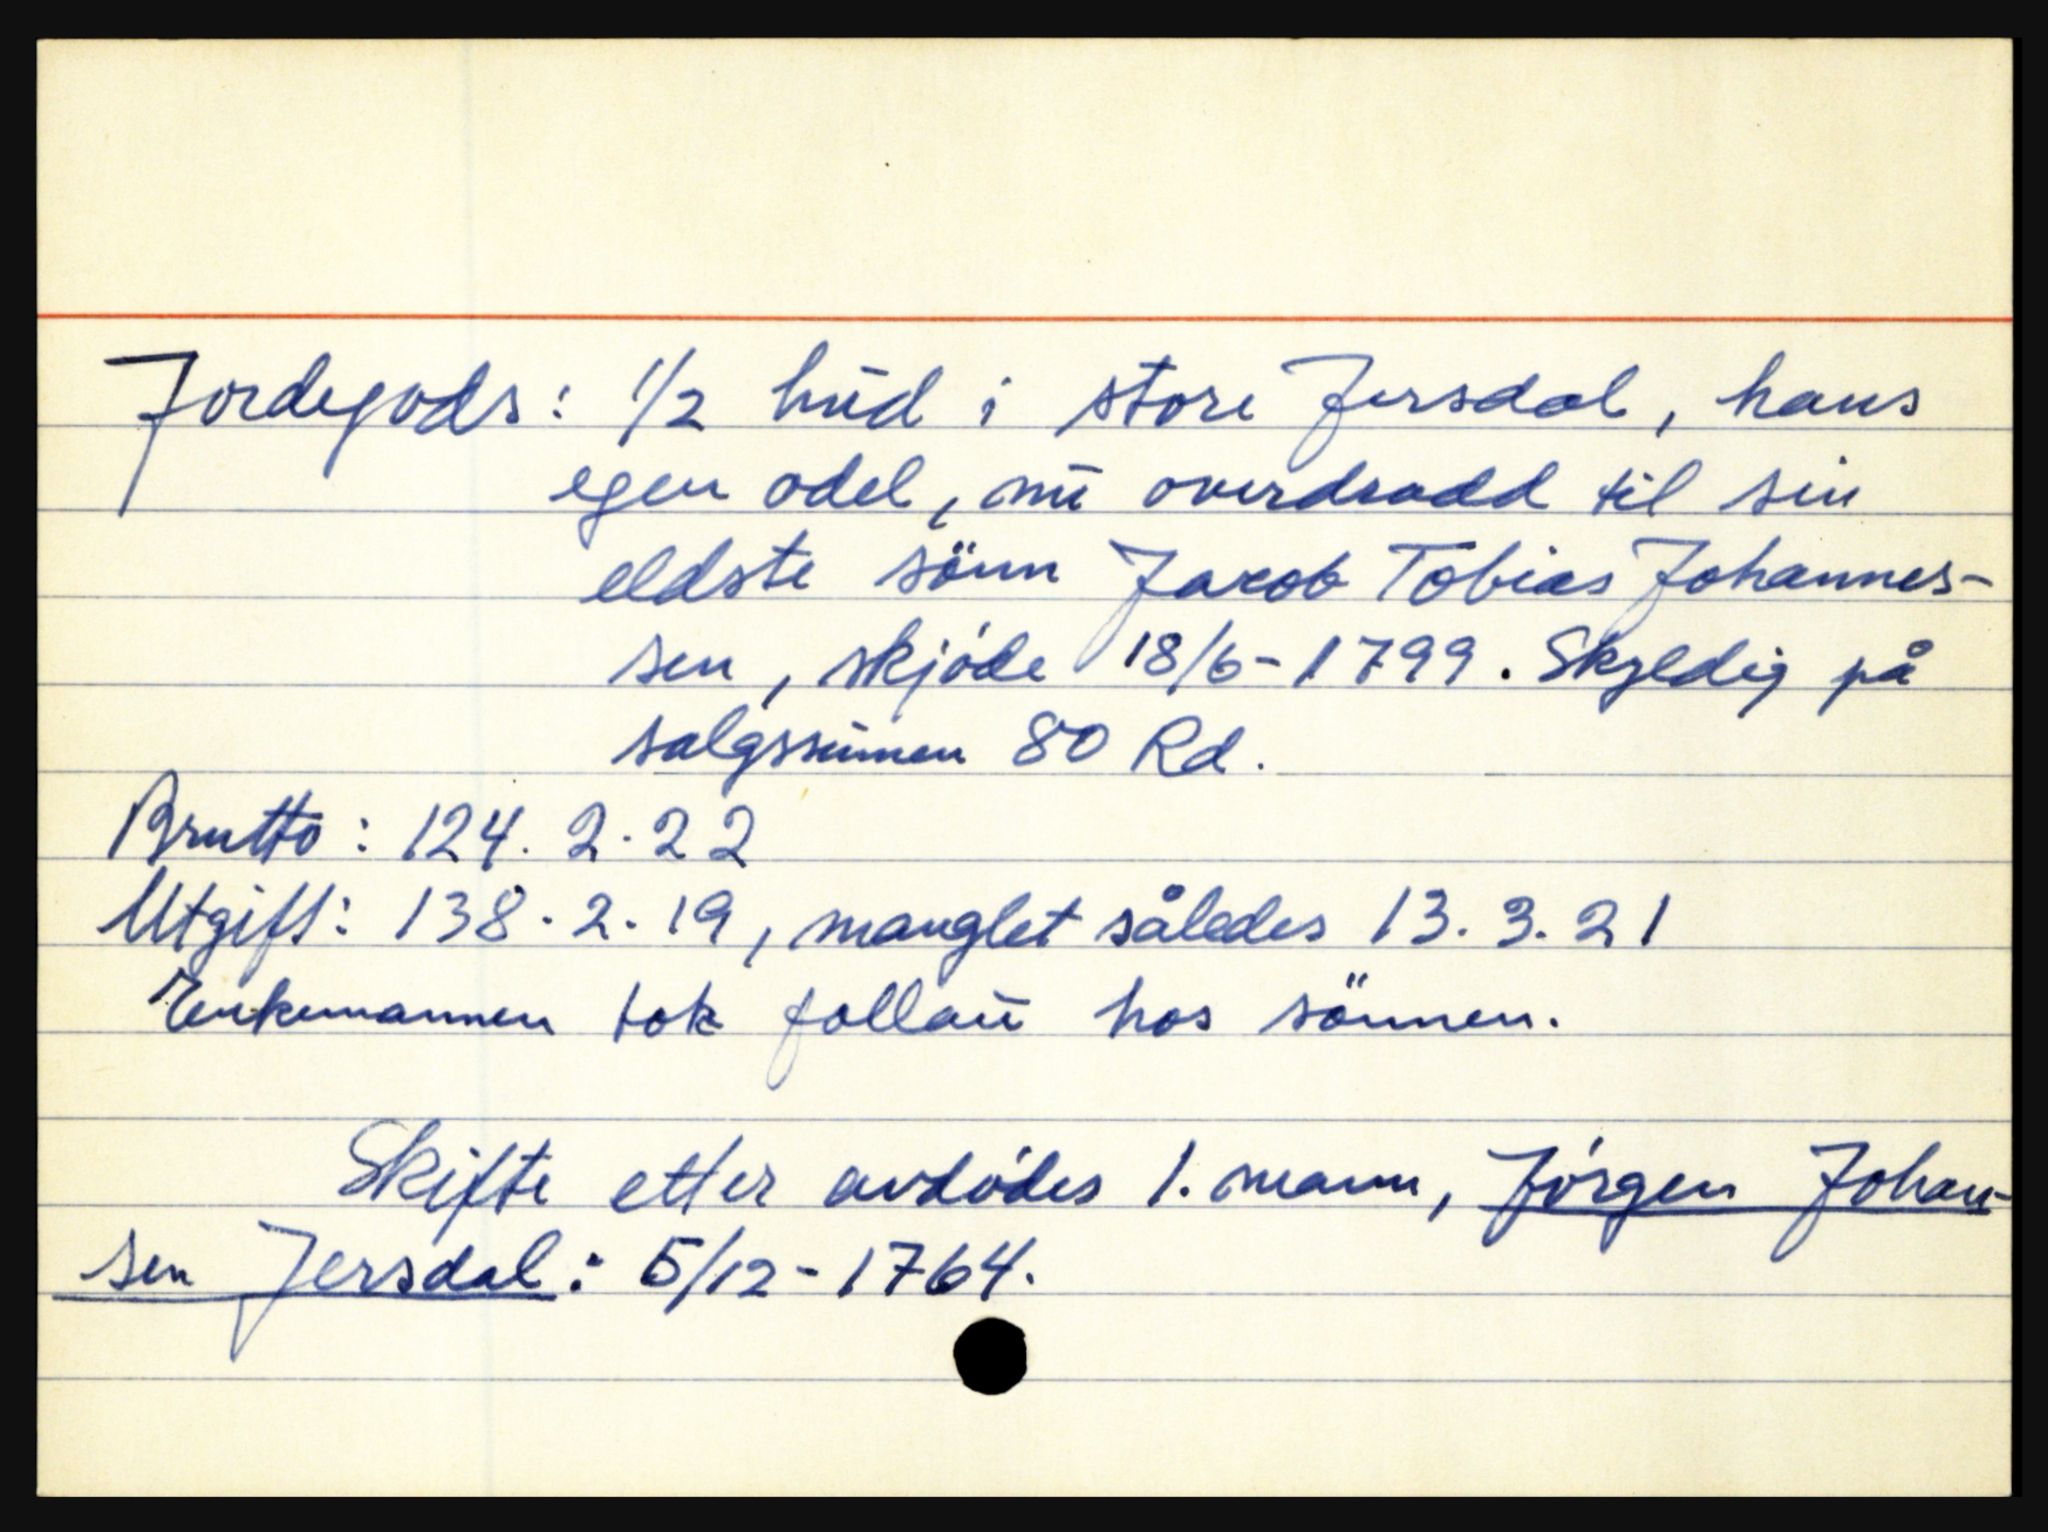 Jordegods: 1/2 hud i store Jersdal, hans
egen odel, nu overdradd til sin
eldste sönn Jacob Tobias Johannes-
sen, skjöde 18/6-1799. Skyldig på
salgssumen 80 Rd.
Brutto: 124. 2. 22
Utgift: 138. 2. 19, manglet således 13. 3. 21
Enkemannen tok follaū hos sönnen.
Skifte etter avdödes 1. mann, Jörgen Johan-
sen Jersdal: 5/12-1764.